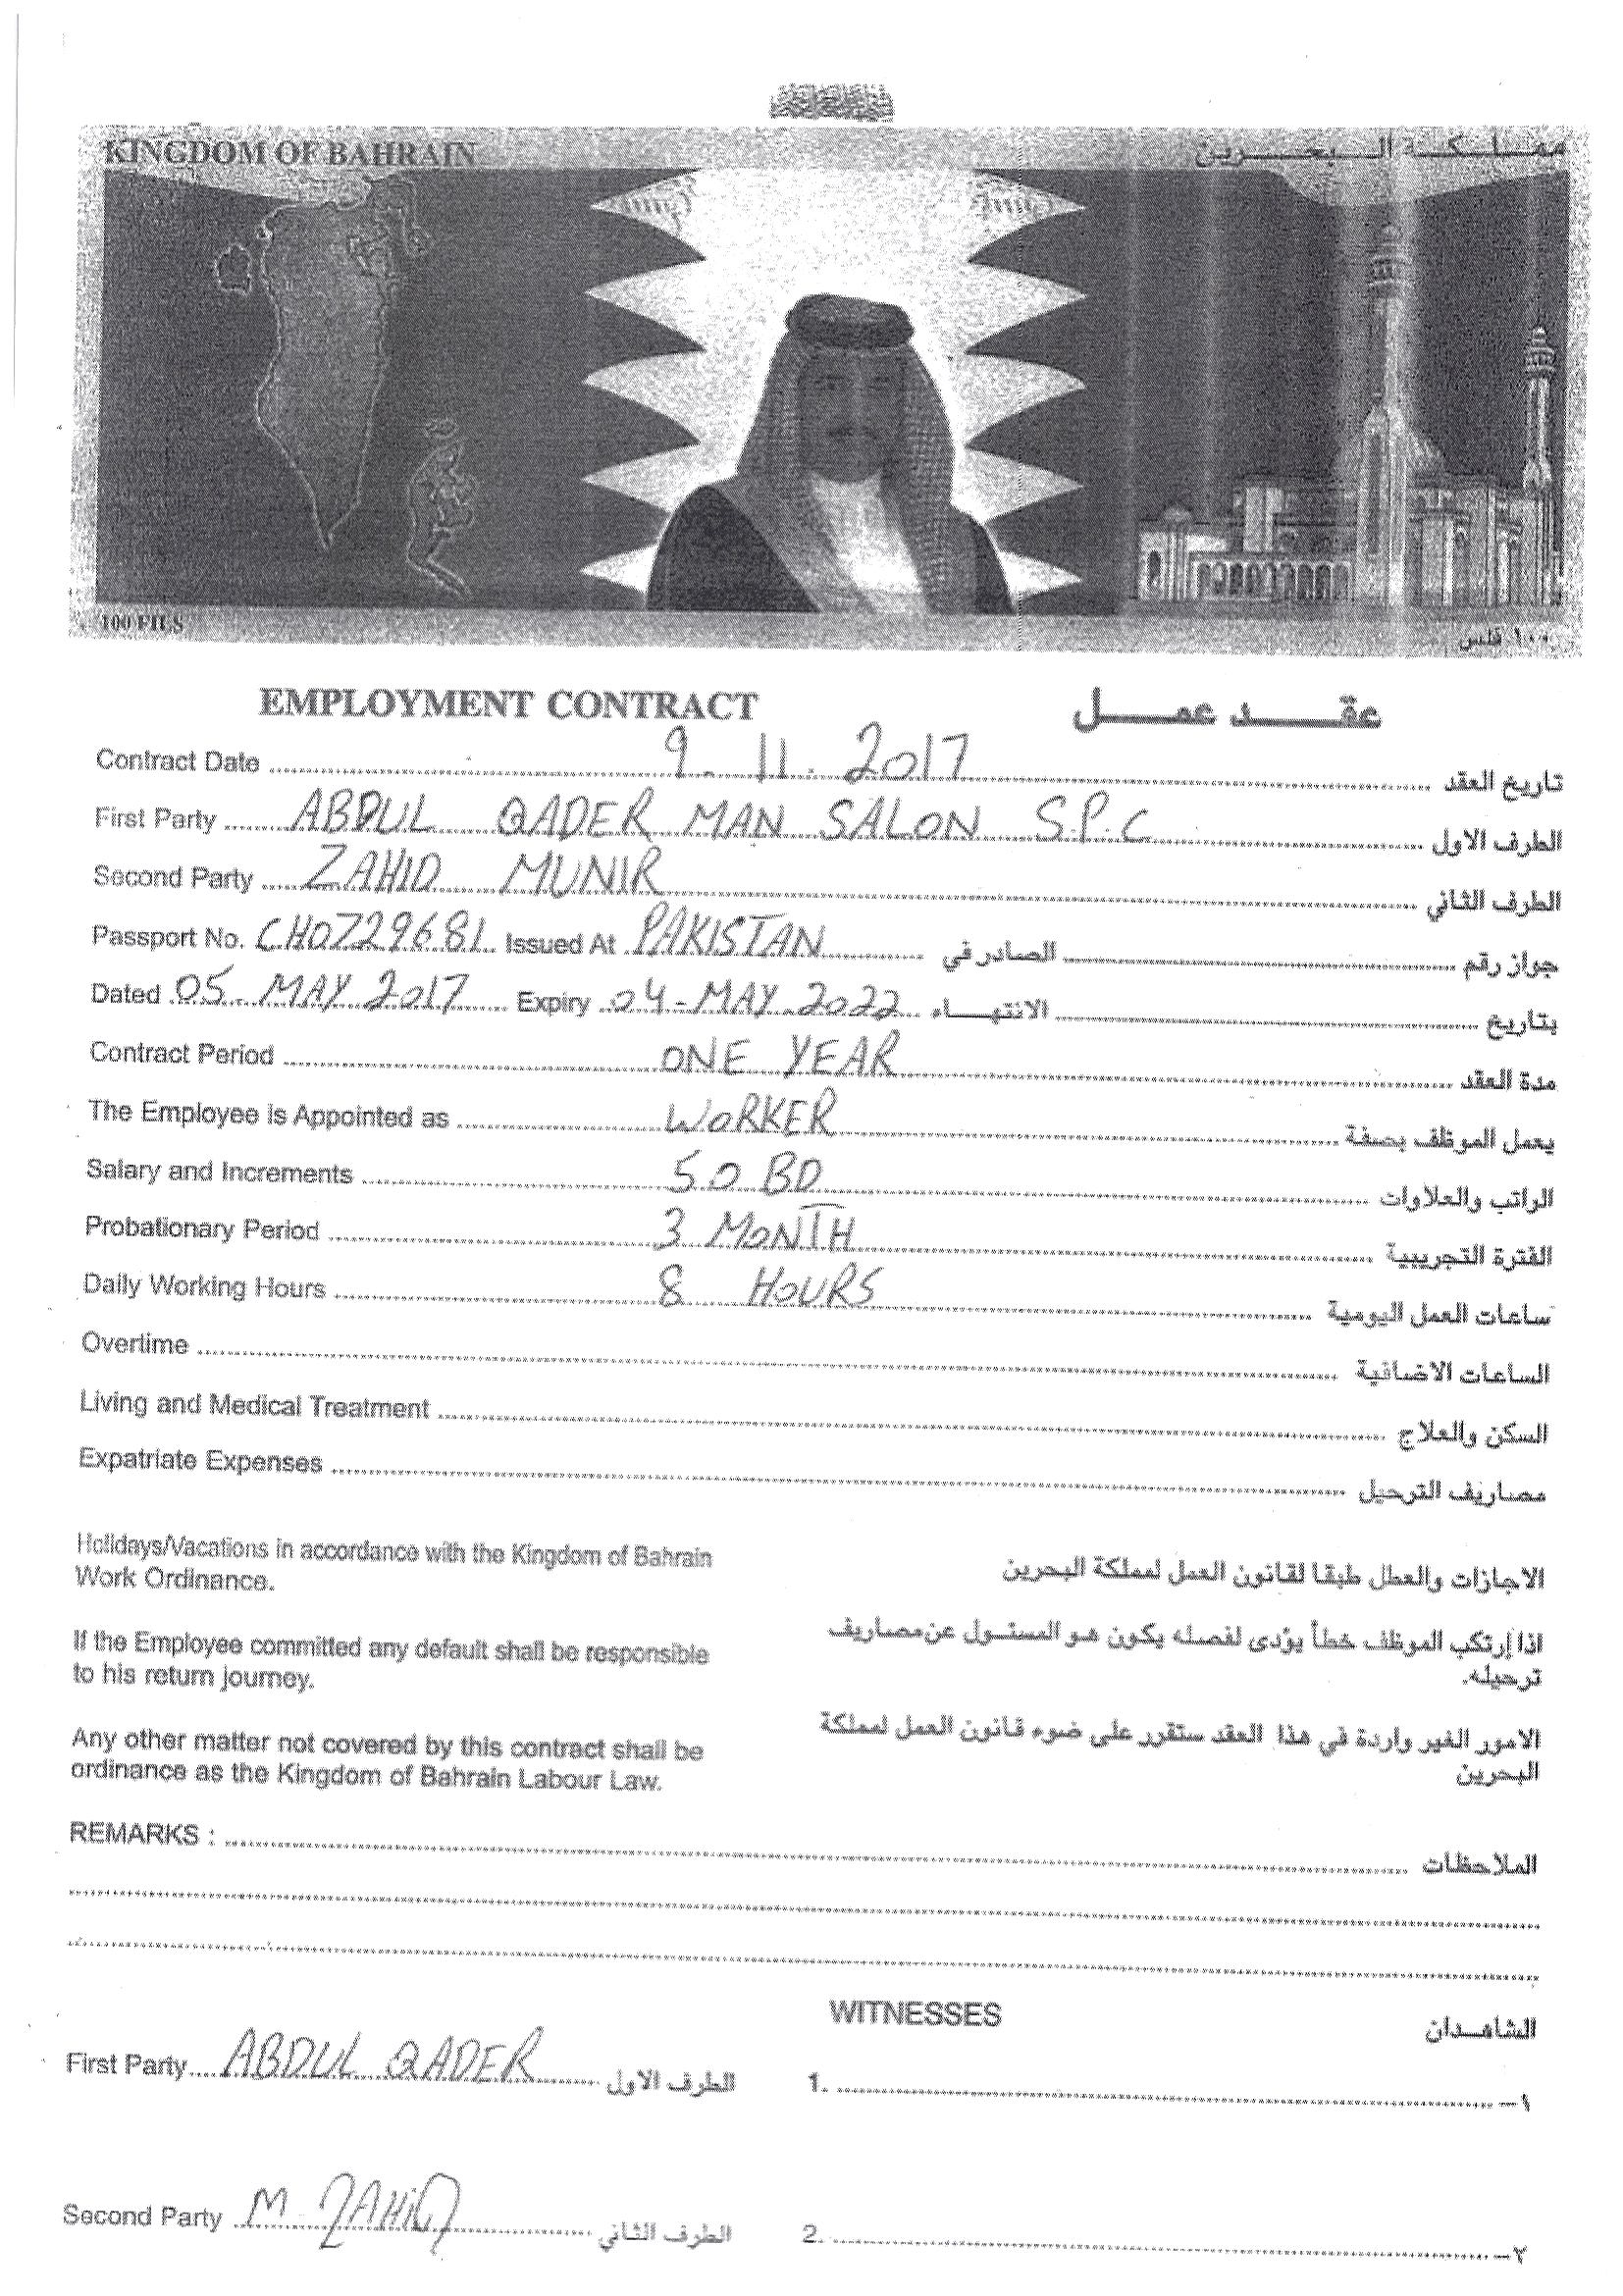 KINGDOM OF BAHRAIN مملكة البحرين
100 FILS ١٠٠ فلس
EMPLOYMENT CONTRACT عقد عمل
Contract Date 9. 11. 2017 تاريخ العقد
First Party ABDUL QADER MAN SALON S.P.C الطرف الاول
Second Party ZAHID MUNIR الطرف الثاني
Passport No. CH0729681 Issued At PAKISTAN الصادر في جواز رقم
Dated 05. MAY 2017 Expiry 04-MAY.2022 الانتهاء بتاريخ
Contract Period ONE YEAR مدة العقد
The Employee is Appointed as WORKER يعمل الموظف بصفة
Salary and Increments 50 BD الراتب والعلاوات
Probationary Period 3 MONTH الفترة التجريبية
Daily Working Hours 8 HOURS ساعات العمل اليومية
Overtime الساعات الاضافية
Living and Medical Treatment السكن والعلاج
Expatriate Expenses مصاريف الترحيل
Holidays/Vacations in accordance with the Kingdom of Bahrain
Work Ordinance.
الاجازات والعطل طبقا لقانون العمل لمملكة البحرين
If the Employee committed any default shall be responsible
to his return journey.
اذا إرتكب الموظف خطأ يؤدى لفصله يكون هو المسئول عن مصاريف
ترحيله.
Any other matter not covered by this contract shall be
ordinance as the Kingdom of Bahrain Labour Law.
الامور الغير واردة في هذا العقد ستقرر على ضوء قانون العمل لمملكة
البحرين
REMARKS : الملاحظات
WITNESSES الشاهدان
First Party ABDUL QADER الطرف الاول 1. ١-
Second Party M ZAHID الطرف الثاني 2. ٢-